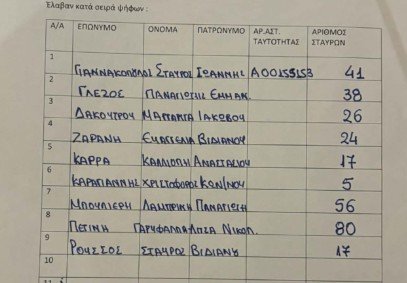 Έλαβαν κατά σειρά ψήφων :
Α/Α ΕΠΩΝΥΜΟ ΟΝΟΜΑ ΠΑΤΡΩΝΥΜΟ ΑΡ.ΑΣΤ. ΤΑΥΤΟΤΗΤΑΣ ΑΡΙΘΜΟΣ ΣΤΑΥΡΩΝ
1 ΓΙΑΝΝΑΚΟΠΟΥΛΟΣ ΣΤΑΥΡΟΣ ΙΩΑΝΝΗΣ Α00155153 41
2 ΓΛΕΖΟΣ ΠΑΝΑΓΙΩΤΗΣ ΕΜΜΑΝ. 38
3 ΔΑΚΟΥΤΡΟΥ ΜΑΡΓΑΡΙΤΑ ΙΑΚΩΒΟΥ 26
4 ΖΑΡΑΝΗ ΕΥΑΓΓΕΛΙΑ ΒΙΔΙΑΝΟΥ 24
5 ΚΑΡΡΑ ΚΑΛΛΙΟΠΗ ΑΝΑΣΤΑΣΙΟΥ 17
6 ΚΑΡΑΓΙΑΝΝΗΣ ΧΡΙΣΤΟΦΟΡΟΣ ΚΩΝ/ΝΟΥ 5
7 ΜΠΟΥΛΙΕΡΗ ΛΑΜΠΡΙΝΗ ΠΑΝΑΓΙΩΤΗ 56
8 ΠΕΤΙΝΗ ΓΑΡΥΦΑΛΛΙΑ-ΛΙΤΣΑ ΝΙΚΟΛ. 80
9 ΡΟΥΣΣΟΣ ΣΤΑΥΡΟΣ ΒΙΔΙΑΝΟ 17
10